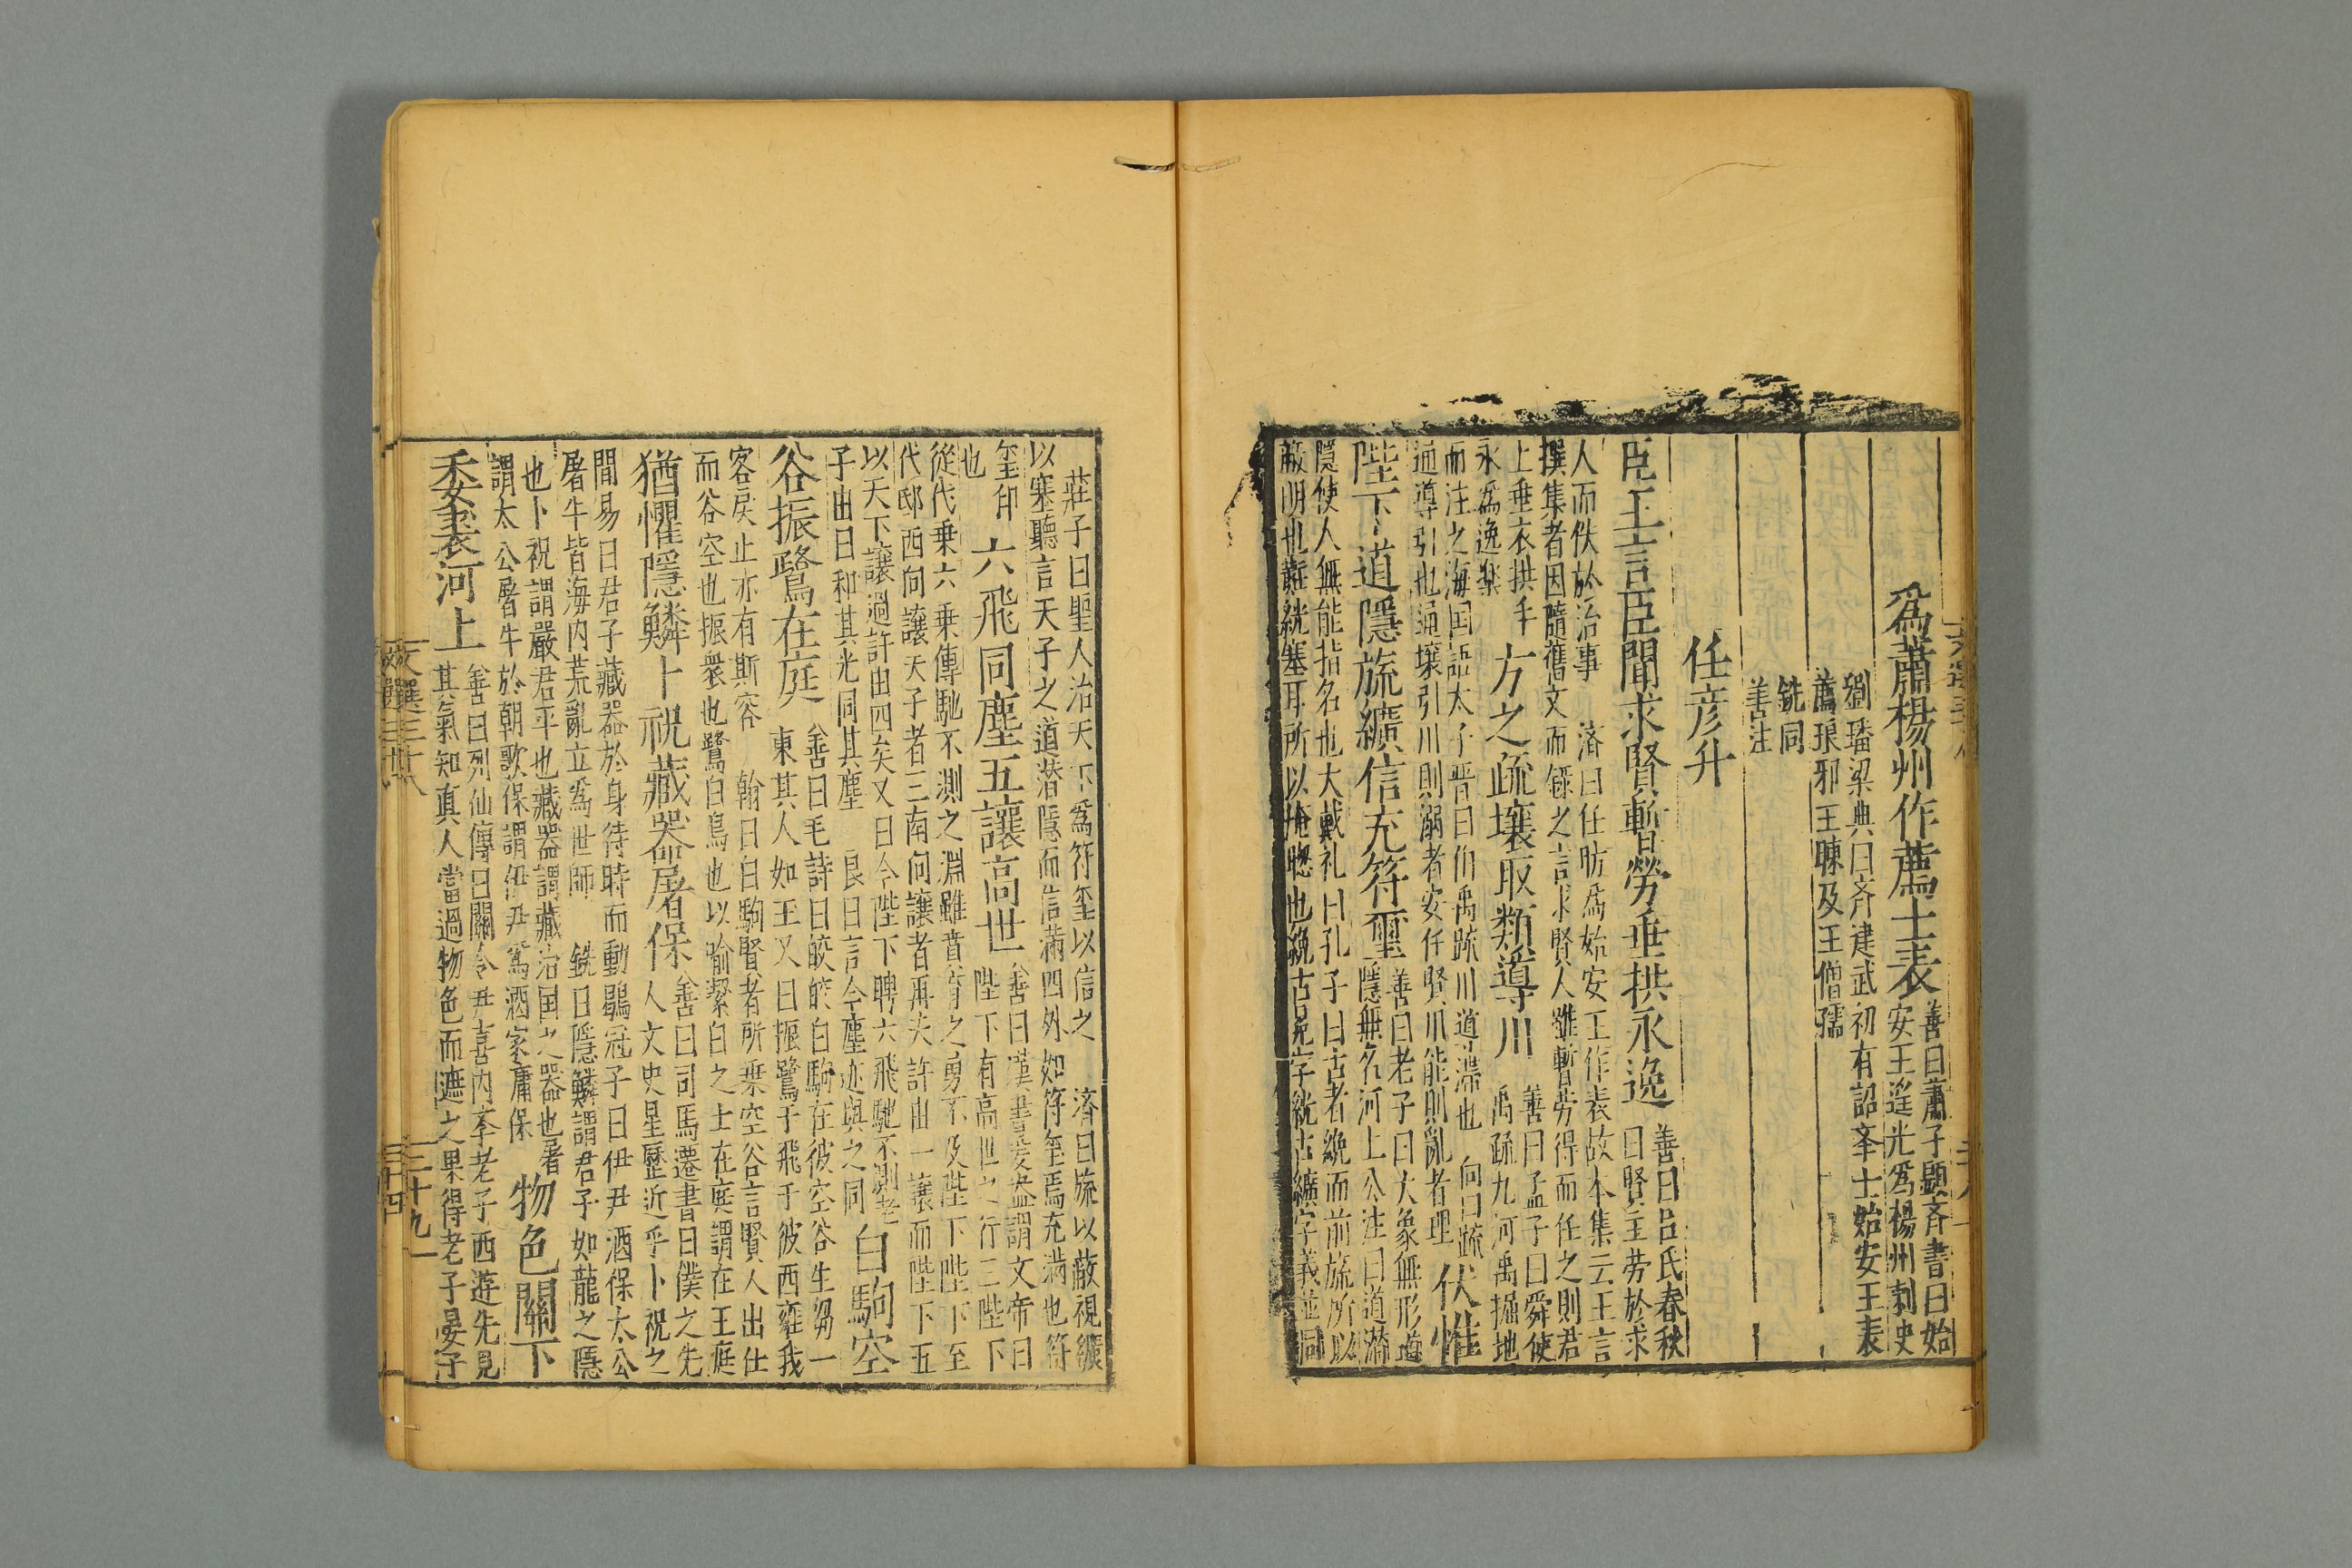 爲蕭楊州作薦士表
善曰蕭子顯齐書曰始
安王遥光爲楊州刺史
劉璠梁典曰齐建武初有詔举士始安王表
薦琅邪王暕及王僧孺
銑同
善注
任彦升
臣王言臣聞求賢暫勞垂拱永逸
善曰吕氏春秋
曰賢主劳於求
人而佚於治事 濟曰任昉爲始安王作表故本集云王言
撰集者因隨舊文而録之言求賢人雖暫劳得而任之則君
上垂衣拱手
永爲逸楽
方之疏壤取類導川
善曰孟子曰舜使
禹疏九河禹掘地
而注之海国語太子晋曰伯禹疏川道滞也 向曰疏
通導引也通壤引川則溺者安任賢川能則亂者理
伏惟
陛下道隱旒纊信充符璽
善曰老子曰大象無形道
隱無名河上公注曰道潜
隱使人無能指名也大戴礼曰孔子曰古者絻而前旒所以
蔽明也黈絖塞耳所以掩聦也絻古冕字絖古纊字義並同
莊子曰聖人治天下爲符玺以信之 濟曰旒以蔽視纊
以塞聽言天子之道潜隱而信满四外如符玺焉充满也符
玺印
也
六飛同塵五讓高世
善曰漢書爰盎謂文帝曰
陛下有高世之行三陛下
從代乗六乗傳馳不測之淵雖賁育之勇不及陛下陛下至
代邸西向讓天子者三南向讓者再夫許由一讓而陛下五
以天下讓過許由四矣又曰今陛下聘六飛馳不測老
子曰和其光同其塵 良曰言今塵迹與之同
白駒空
谷振鷺在庭
善曰毛詩曰皎皎白駒在彼空谷生芻一
東其人如玉又曰振鷺于飛于彼西雍我
客戾止亦有斯容 翰曰白駒賢者所乗空谷言賢人出仕
而谷空也振衆也鷺白鳥也以喻絜白之士在庭謂在王庭
猶懼隱鱗卜祝藏器屠保
善曰司馬遷書曰僕之先
人文史星歷近乎卜祝之
間易曰君子藏器於身待時而動鶡冠子曰伊尹酒保太公
屠牛皆海内荒亂立爲世師 銑曰隱鱗謂君子如龍之隱
也卜祝謂嚴君平也藏器謂藏治国之器也屠
謂太公屠牛於朝歌保謂伊尹爲酒家庸保
物色關下
委裘河上
善曰列仙傳曰關令尹喜内孝老子西遊先見
其氣知真人當過物色而遮之果得老子晏子
文選三十八
三十九一